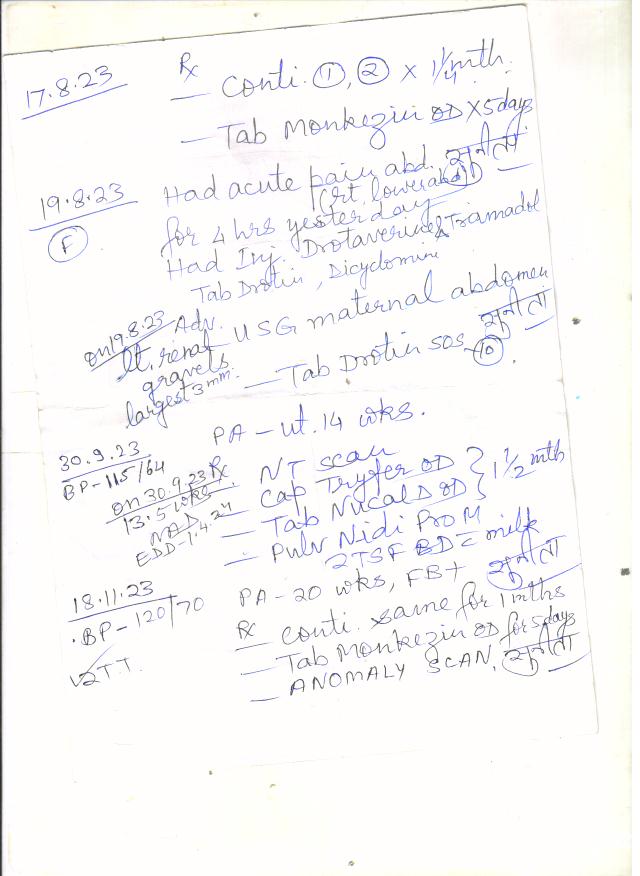 17.8.23
Rx
— Conti. ①, ② × 1¼ mth.
— Tab Monkezin OD × 5 days
सुनीता
19.8.23
F
Had acute pain abd.
(rt. lower abd)
for 4 hrs yesterday
Had Inj. Drotaverine & Tramadol
Tab Drotin, Dicyclomine
on 19.8.23
Lt. renal
gravels
largest 3 mm.
Adv.
USG maternal abdomen
— Tab Drotin SOS
—10
सुनीता
30.9.23
BP-115/64
PA – ut. 14 wks.
on 30.9.23
13.5 wks
NAD
EDD-1.4.24
Rx
NT scan
— Cap Tryfer OD
— Tab Nucal D OD
} 1 1/2 mth
— Pulv Nidi Pro M
2TSF BD c̄ milk
सुनीता
18.11.23
BP – 120/70
√2TT.
PA – 20 wks, FB+
Rx
— conti. same for 1 mths
— Tab Monkezin OD for 5 days
— ANOMALY SCAN.
सुनीता